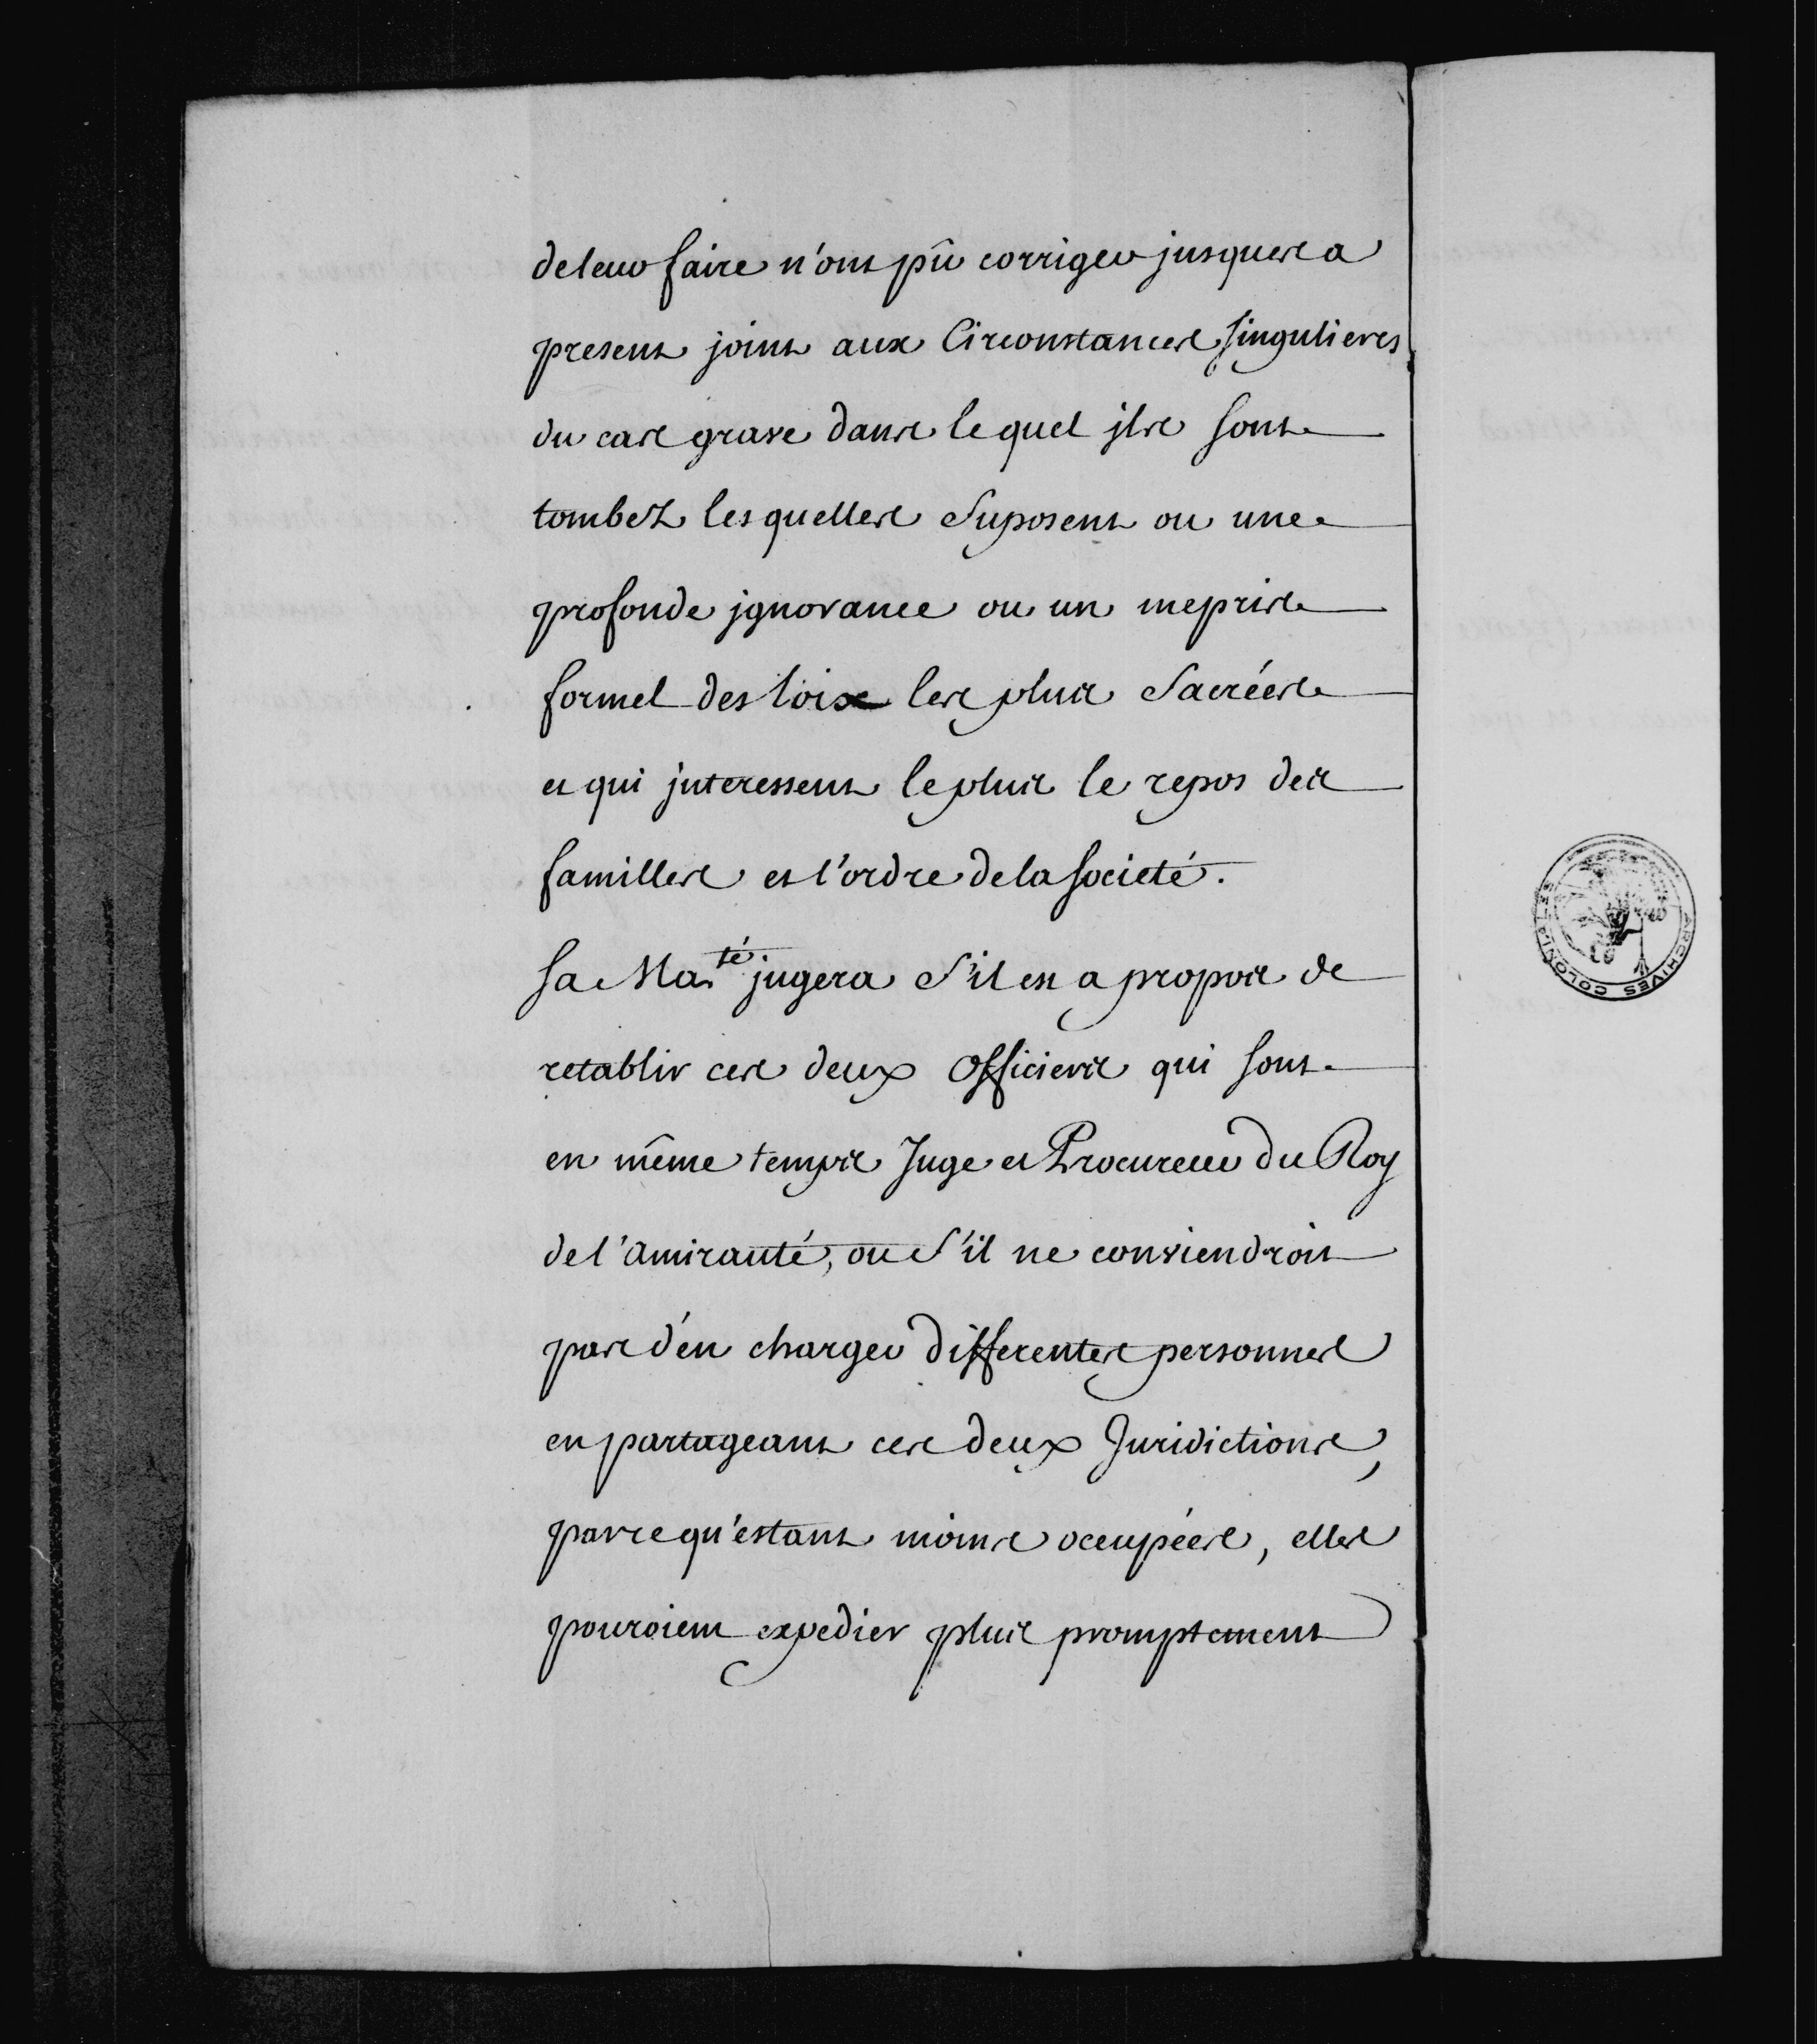 de leur faire n'ont pû corriger jusques a
present joint aux Circonstances singulieres
du cas grave dans le quel jls sont
tombez lesquelles Suposent ou une
profonde jgnorance ou un mepris
formel des loix les plus Sacrées
et qui jnteressent le plus le repos des
familles et l'ordre de la societé.
sa Ma.té jugera S'il est a propos de
retablir ces deux Officiers qui sont
en même temps Juge et Procureur du Roy
de l'amirauté, ou S'il ne conviendroit
pas d'en charger differentes personnes
en partageant ces deux Juridictions,
parce qu'estant moins occupées, elles
pouroient expedier plus promptement
ARCHIVES COLONIALES